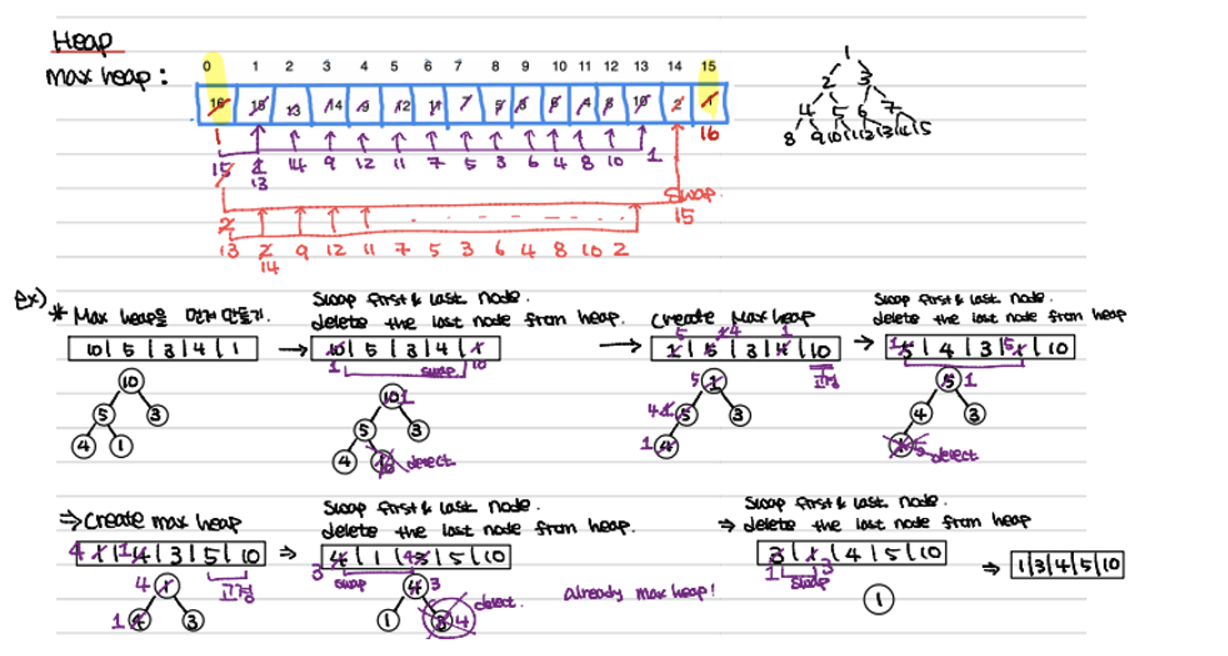 Heap
max heap :
0 1 2 3 4 5 6 7 8 9 10 11 12 13 14 15
16 15 13 14 9 12 11 7 5 8 10 2 1
1 16
15 1 14 9 12 11 7 5 3 6 4 8 10 1
13
swap.
2 15
13 2 9 12 11 7 5 3 6 4 8 10 2
14
1
2 3
4 5 6 7
8 9 10 11 12 13 14 15
ex)
* Max heap을 먼저 만들기.
10 | 5 | 3 | 4 | 1
10
5 3
4 1
Swap first & last node.
delete the last node from heap.
10 | 5 | 3 | 4 | 1
1 swap 10
10 1
5 3
4 10 delect
create Max heap
5 4 1
1 | 5 | 3 | 4 | 10
고정
5 1
4 1 5 3
1 4
Swap first & last node.
delete the last node from heap
1 5 | 4 | 3 | 5 1 | 10
5 1
4 3
1 5 delect
⇒ Create max heap
4 1 | 1 4 | 3 | 5 | 10
고정
4 1
1 4 3
Swap first & last node.
delete the last node from heap.
⇒
4 | 1 | 4 3 | 5 | 10
3 swap
4 3
1 3 4 delect.
Already max heap!
Swap first & last node.
⇒ delete the last node from heap
3 | 1 | 4 | 5 | 10
1 swap 3
1
⇒ 1 | 3 | 4 | 5 | 10